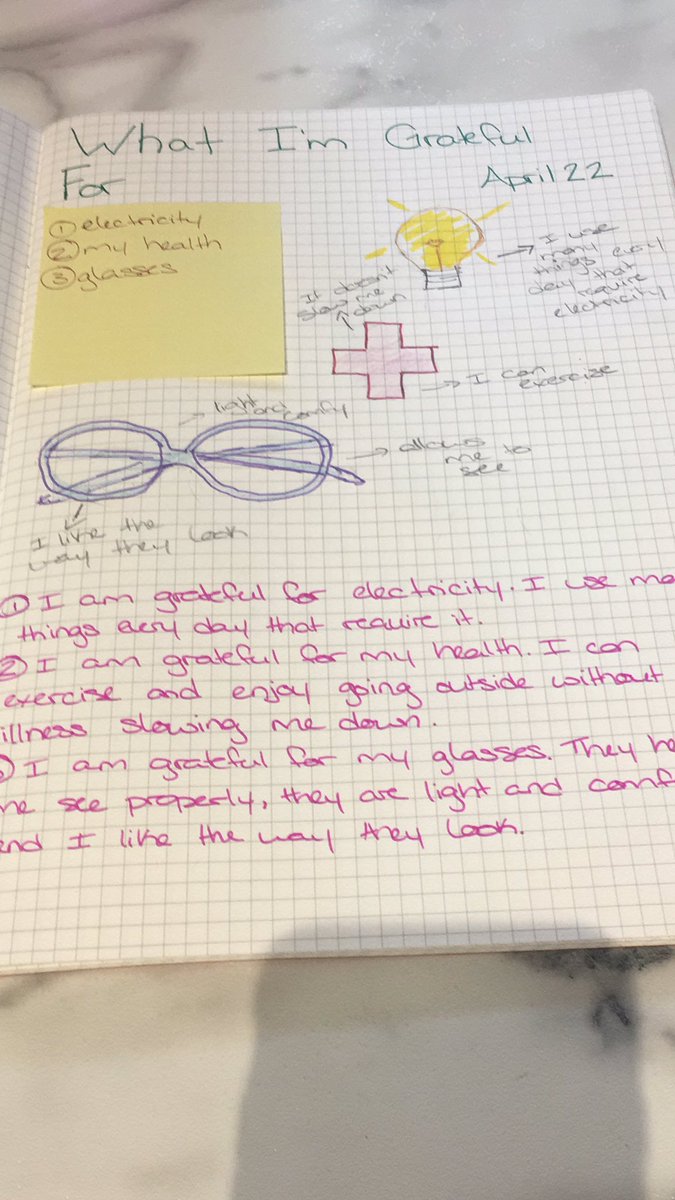 What I'm Grateful
For
April 22
① electricity
② my health
③ glasses
I use
many
things every
day that
require
electricity
It doesn't
slow me
down
I can
exercise
light and
comfy
allows
me to
see
I like the
way they look
① I am grateful for electricity. I use
things every day that require it.
② I am grateful for my health. I can
exercise and enjoy going outside without
illness slowing me down.
I am grateful for my glasses. They
see properly, they are light and
I like the way they look.